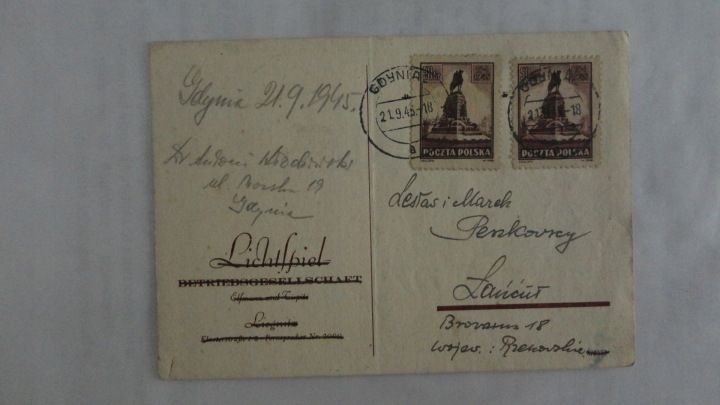 Gdynia 21.9.1945.
Dr Antoni
ul. 19
Gdynia
Lichtspiel
BETRIEBSGESELLSCHAFT
Liegnitz
GDYNIA
21.9.45.-18
a
POCZTA POLSKA
GDYNIA
-18
POCZTA POLSKA
Lesław i Marek
Peszkowscy
Łańcut
Browarna 18
wojew.: Rzeszowskie